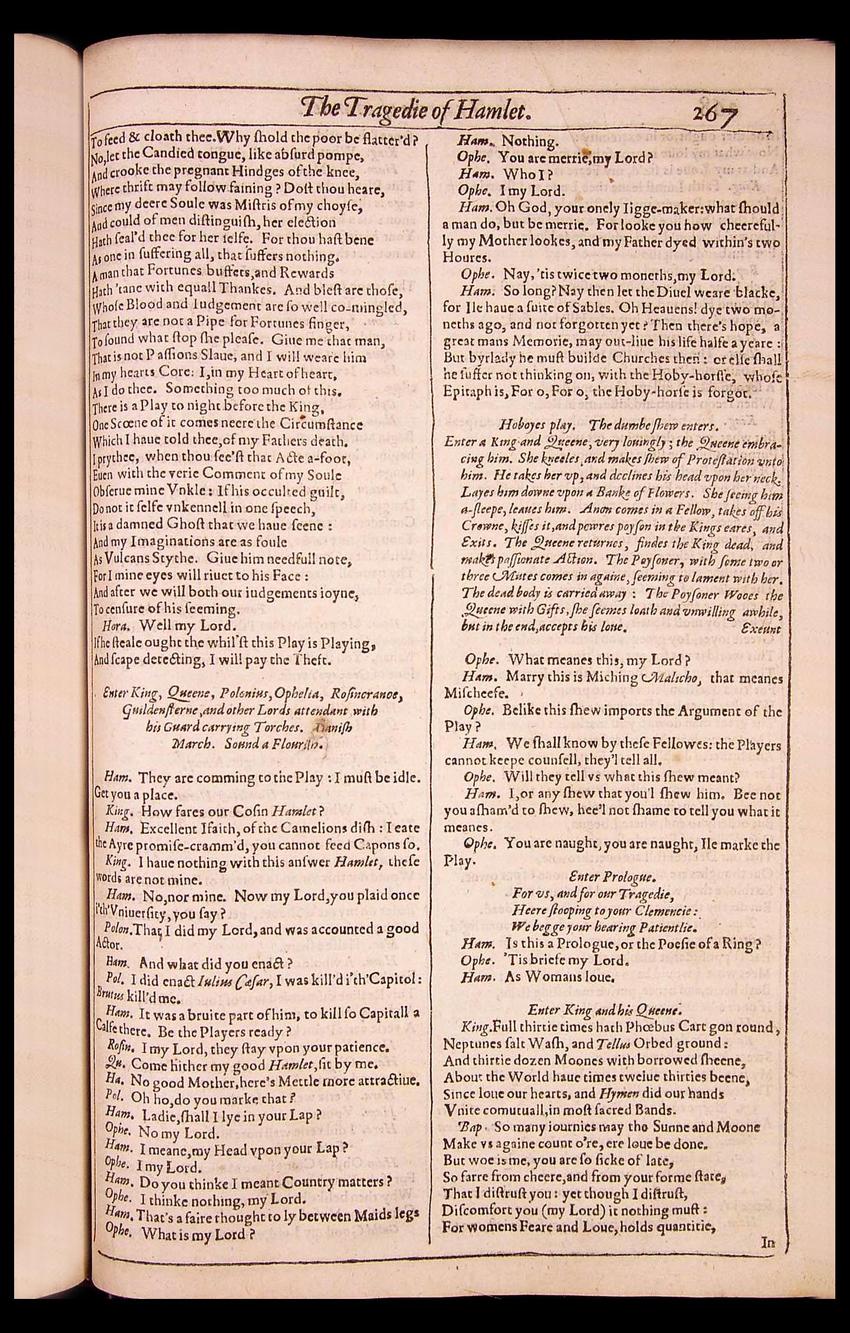 The Tragedie of Hamlet. 267
To feed & cloath thee. Why ſhold the poor be flatter'd?
No, let the Candied tongue, like abſurd pompe,
And crooke the pregnant Hindges of the knee,
Where thrift may follow faining? Doſt thou heare,
Since my deere Soule was Miſtris of my choyſe,
And could of men diſtinguiſh, her election
Hath ſeal'd thee for her ſelfe. For thou haſt bene
As one in ſuffering all, that ſuffers nothing.
A man that Fortunes buffets, and Rewards
Hath 'tane with equall Thankes. And bleſt are thoſe,
Whoſe Blood and Iudgement are ſo well co-mingled,
That they are not a Pipe for Fortunes finger,
To ſound what ſtop ſhe pleaſe. Giue me that man,
That is not Paſſions Slaue, and I will weare him
In my hearts Core: I, in my Heart of heart,
As I do thee. Something too much of this.
There is a Play to night before the King,
One Scœne of it comes neere the Circumſtance
Which I haue told thee, of my Fathers death.
I prythee, when thou ſee'ſt that Acte a-foot,
Euen with the verie Comment of my Soule
Obſerue mine Vnkle: If his occulted guilt,
Do not it ſelfe vnkennell in one ſpeech,
It is a damned Ghoſt that we haue ſeene:
And my Imaginations are as foule
As Vulcans Stythe. Giue him needfull note,
For I mine eyes will riuet to his Face:
And after we will both our iudgements ioyne,
To cenſure of his ſeeming.
Hora. Well my Lord.
If he ſteale ought the whil'ſt this Play is Playing,
And ſcape detecting, I will pay the Theft.
Enter King, Queene, Polonius, Ophelia, Roſincrance,
Guildenſterne, and other Lords attendant with
his Guard carrying Torches. Daniſh
March. Sound a Flouriſh.
Ham. They are comming to the Play: I muſt be idle.
Get you a place.
King. How fares our Coſin Hamlet?
Ham. Excellent Ifaith, of the Camelions diſh: I eate
the Ayre promiſe-cramm'd, you cannot feed Capons ſo.
King. I haue nothing with this anſwer Hamlet, theſe
words are not mine.
Ham. No, nor mine. Now my Lord, you plaid once
i'th'Vniuerſity, you ſay?
Polon. That I did my Lord, and was accounted a good
Actor.
Ham. And what did you enact?
Pol. I did enact Iulius Cæſar, I was kill'd i'th'Capitol:
Brutus kill'd me.
Ham. It was a bruite part of him, to kill ſo Capitall a
Calfe there. Be the Players ready?
Roſin. I my Lord, they ſtay vpon your patience.
Qu. Come hither my good Hamlet, ſit by me.
Ha. No good Mother, here's Mettle more attractiue.
Pol. Oh ho, do you marke that?
Ham. Ladie, ſhall I lye in your Lap?
Ophe. No my Lord.
Ham. I meane, my Head vpon your Lap?
Ophe. I my Lord.
Ham. Do you thinke I meant Country matters?
Ophe. I thinke nothing, my Lord.
Ham. That's a faire thought to ly between Maids legs
Ophe. What is my Lord?
Ham. Nothing.
Ophe. You are merrie, my Lord?
Ham. Who I?
Ophe. I my Lord.
Ham. Oh God, your onely Iigge-maker: what ſhould
a man do, but be merrie. For looke you how cheereful-
ly my Mother lookes, and my Father dyed within's two
Houres.
Ophe. Nay, 'tis twice two moneths, my Lord.
Ham. So long? Nay then let the Diuel weare blacke,
for Ile haue a ſuite of Sables. Oh Heauens! dye two mo-
neths ago, and not forgotten yet? Then there's hope, a
great mans Memorie, may out-liue his life halfe a yeare:
But byrlady he muſt builde Churches then: or elſe ſhall
he ſuffer not thinking on, with the Hoby-horſſe, whoſe
Epitaph is, For o, For o, the Hoby-horſe is forgot.
Hoboyes play. The dumbe ſhew enters.
Enter a King and Queene, very louingly; the Queene embra-
cing him. She kneeles, and makes ſhew of Proteſtation vnto
him. He takes her vp, and declines his head vpon her neck.
Layes him downe vpon a Banke of Flowers. She ſeeing him
a-ſleepe, leaues him. Anon comes in a Fellow, takes off his
Crowne, kiſſes it, and powres poyſon in the Kings eares, and
Exits. The Queene returnes, findes the King dead, and
makes paſſionate Action. The Poyſoner, with ſome two or
three Mutes comes in againe, ſeeming to lament with her.
The dead body is carried away: The Poyſoner Wooes the
Queene with Gifts, ſhe ſeemes loath and vnwilling awhile,
but in the end, accepts his loue. Exeunt
Ophe. What meanes this, my Lord?
Ham. Marry this is Miching Malicho, that meanes
Miſcheefe.
Ophe. Belike this ſhew imports the Argument of the
Play?
Ham. We ſhall know by theſe Fellowes: the Players
cannot keepe counſell, they'l tell all.
Ophe. Will they tell vs what this ſhew meant?
Ham. I, or any ſhew that you'l ſhew him. Bee not
you aſham'd to ſhew, hee'l not ſhame to tell you what it
meanes.
Ophe. You are naught, you are naught, Ile marke the
Play.
Enter Prologue.
For vs, and for our Tragedie,
Heere ſtooping to your Clemencie:
We begge your hearing Patientlie.
Ham. Is this a Prologue, or the Poeſie of a Ring?
Ophe. 'Tis briefe my Lord.
Ham. As Womans loue.
Enter King and his Queene.
King. Full thirtie times hath Phœbus Cart gon round,
Neptunes ſalt Waſh, and Tellus Orbed ground:
And thirtie dozen Moones with borrowed ſheene,
About the World haue times twelue thirties beene,
Since loue our hearts, and Hymen did our hands
Vnite comutuall, in moſt ſacred Bands.
Bap. So many iournies may the Sunne and Moone
Make vs againe count o're, ere loue be done.
But woe is me, you are ſo ſicke of late,
So farre from cheere, and from your forme ſtate,
That I diſtruſt you: yet though I diſtruſt,
Diſcomfort you (my Lord) it nothing muſt:
For womens Feare and Loue, holds quantitie,
In